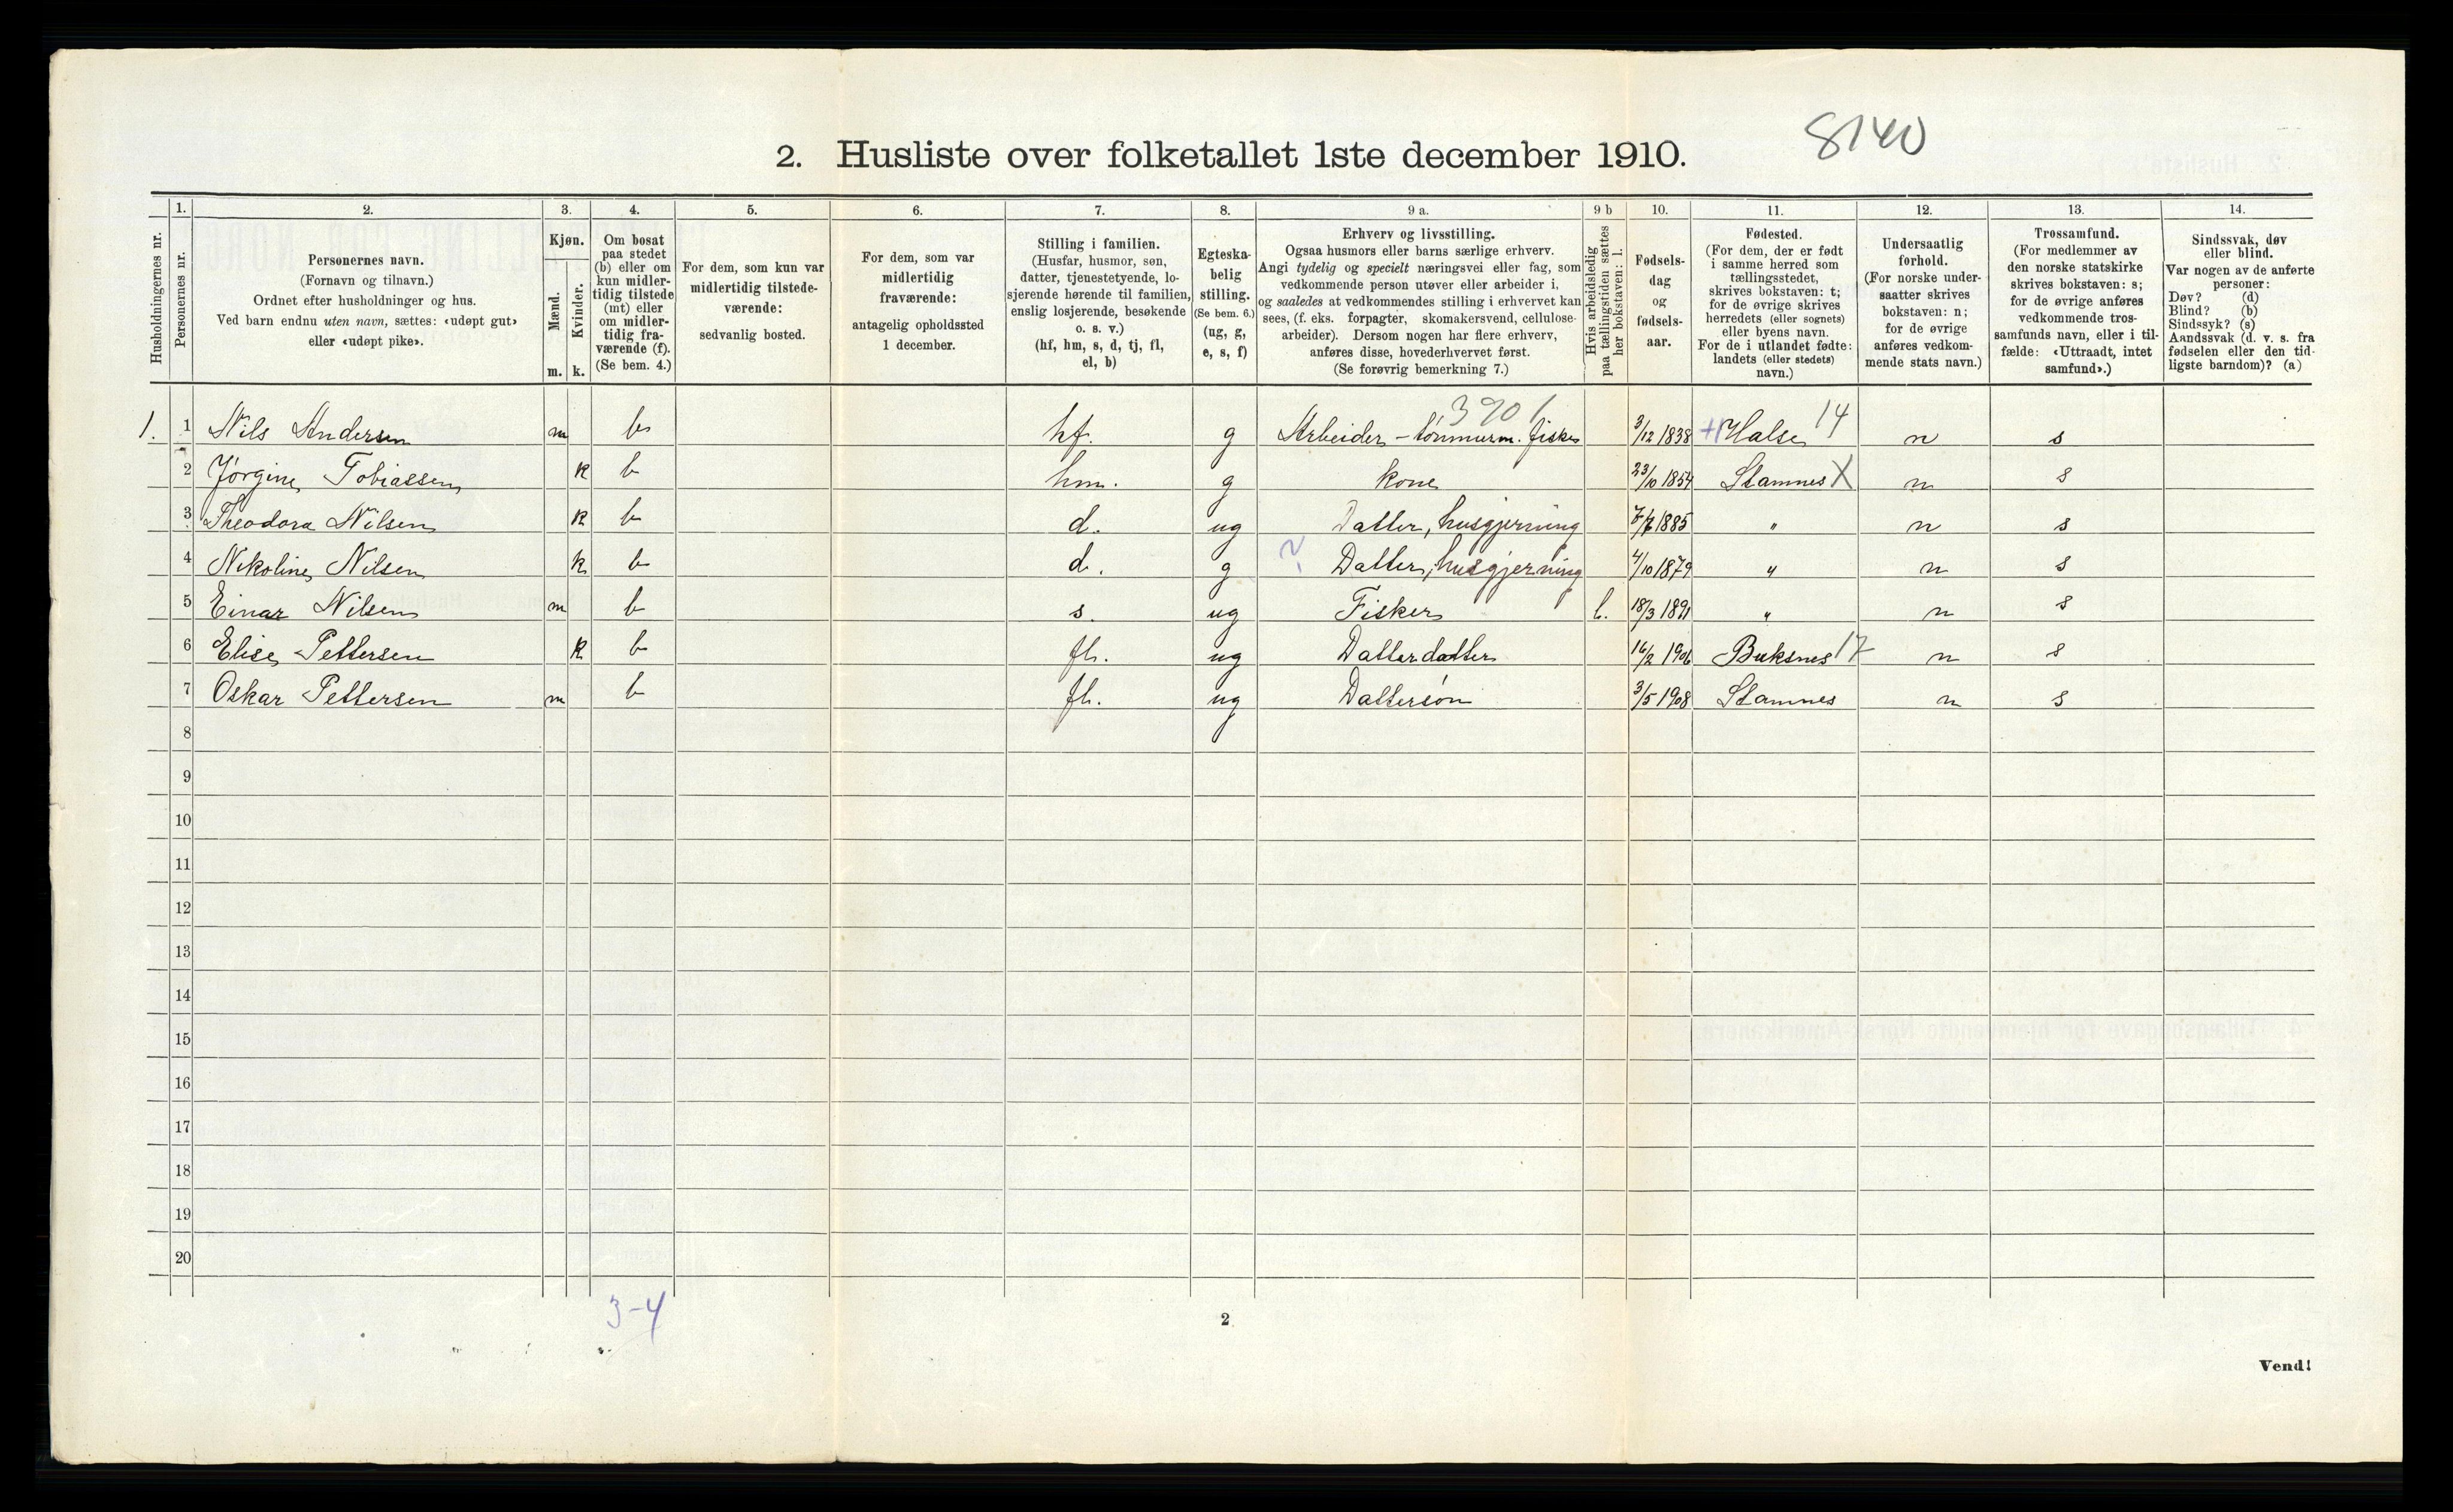 2. Husliste over folketallet 1ste december 1910.
8140
1. 2. 3. 4. 5. 6. 7. 8. 9 a. 9 b 10. 11. 12. 13. 14.
Husholdningernes nr.
Personernes nr.
Personernes navn.
(Fornavn og tilnavn.)
Ordnet efter husholdninger og hus.
Ved barn endnu uten navn, sættes: «udøpt gut»
eller «udøpt pike».
Kjøn.
Mænd.
Kvinder.
m. k.
Om bosat
paa stedet
(b) eller om
kun midler-
tidig tilstede
(mt) eller
om midler-
tidig fra-
værende (f).
(Se bem. 4.)
For dem, som kun var
midlertidig tilstede-
værende:
sedvanlig bosted.
For dem, som var
midlertidig
fraværende:
antagelig opholdssted
1 december.
Stilling i familien.
(Husfar, husmor, søn,
datter, tjenestetyende, lo-
sjerende hørende til familien,
enslig losjerende, besøkende
o. s. v.)
(hf, hm, s, d, tj, fl,
el, b)
Egteska-
belig
stilling.
(Se bem. 6.)
(ug, g,
e, s, f)
Erhverv og livsstilling.
Ogsaa husmors eller barns særlige erhverv.
Angi tydelig og specielt næringsvei eller fag, som
vedkommende person utøver eller arbeider i,
og saaledes at vedkommendes stilling i erhvervet kan
sees, (f. eks. forpagter, skomakersvend, cellulose-
arbeider). Dersom nogen har flere erhverv,
anføres disse, hovederhvervet først.
(Se forøvrig bemerkning 7.)
Hvis arbeidsledig
paa tællingstiden sættes
her bokstaven: l.
Fødsels-
dag
og
fødsels-
aar.
Fødested.
(For dem, der er født
i samme herred som
tællingsstedet,
skrives bokstaven: t;
for de øvrige skrives
herredets (eller sognets)
eller byens navn.
For de i utlandet fødte:
landets (eller stedets)
navn.)
Undersaatlig
forhold.
(For norske under-
saatter skrives
bokstaven: n;
for de øvrige
anføres vedkom-
mende stats navn.)
Trossamfund.
(For medlemmer av
den norske statskirke
skrives bokstaven: s;
for de øvrige anføres
vedkommende tros-
samfunds navn, eller i til-
fælde: «Uttraadt, intet
samfund».)
Sindssvak, døv
eller blind.
Var nogen av de anførte
personer:
Døv? (d)
Blind? (b)
Sindssyk? (s)
Aandssvak (d. v. s. fra
fødselen eller den tid-
ligste barndom)? (a)
3901 14
1. 1 Nils Andersen m b hf. g Arbeider - tømmerm. fisker 3/12 1838 + Halse n s
2 Jørgine Tobiassen k b hm. g kone 23/10 1854 Stamnes X n s
3 Theodora Nilsen k b d. ug Datter, husgjerning 7/7 1885 " n s
4 Nikoline Nilsen k b d. g ? Datter, husgjerning 4/10 1879 " n s
5 Einar Nilsen m b s. ug Fisker l. 18/3 1891 " n s
6 Elise Pettersen k b fl. ug Datterdatter 16/2 1906 Buksnes 17 n s
7 Oskar Pettersen m b fl. ug Dattersøn 3/5 1908 Stamnes n s
8
9
10
11
12
13
14
15
16
17
18
19
20
3-4
2
Vend!